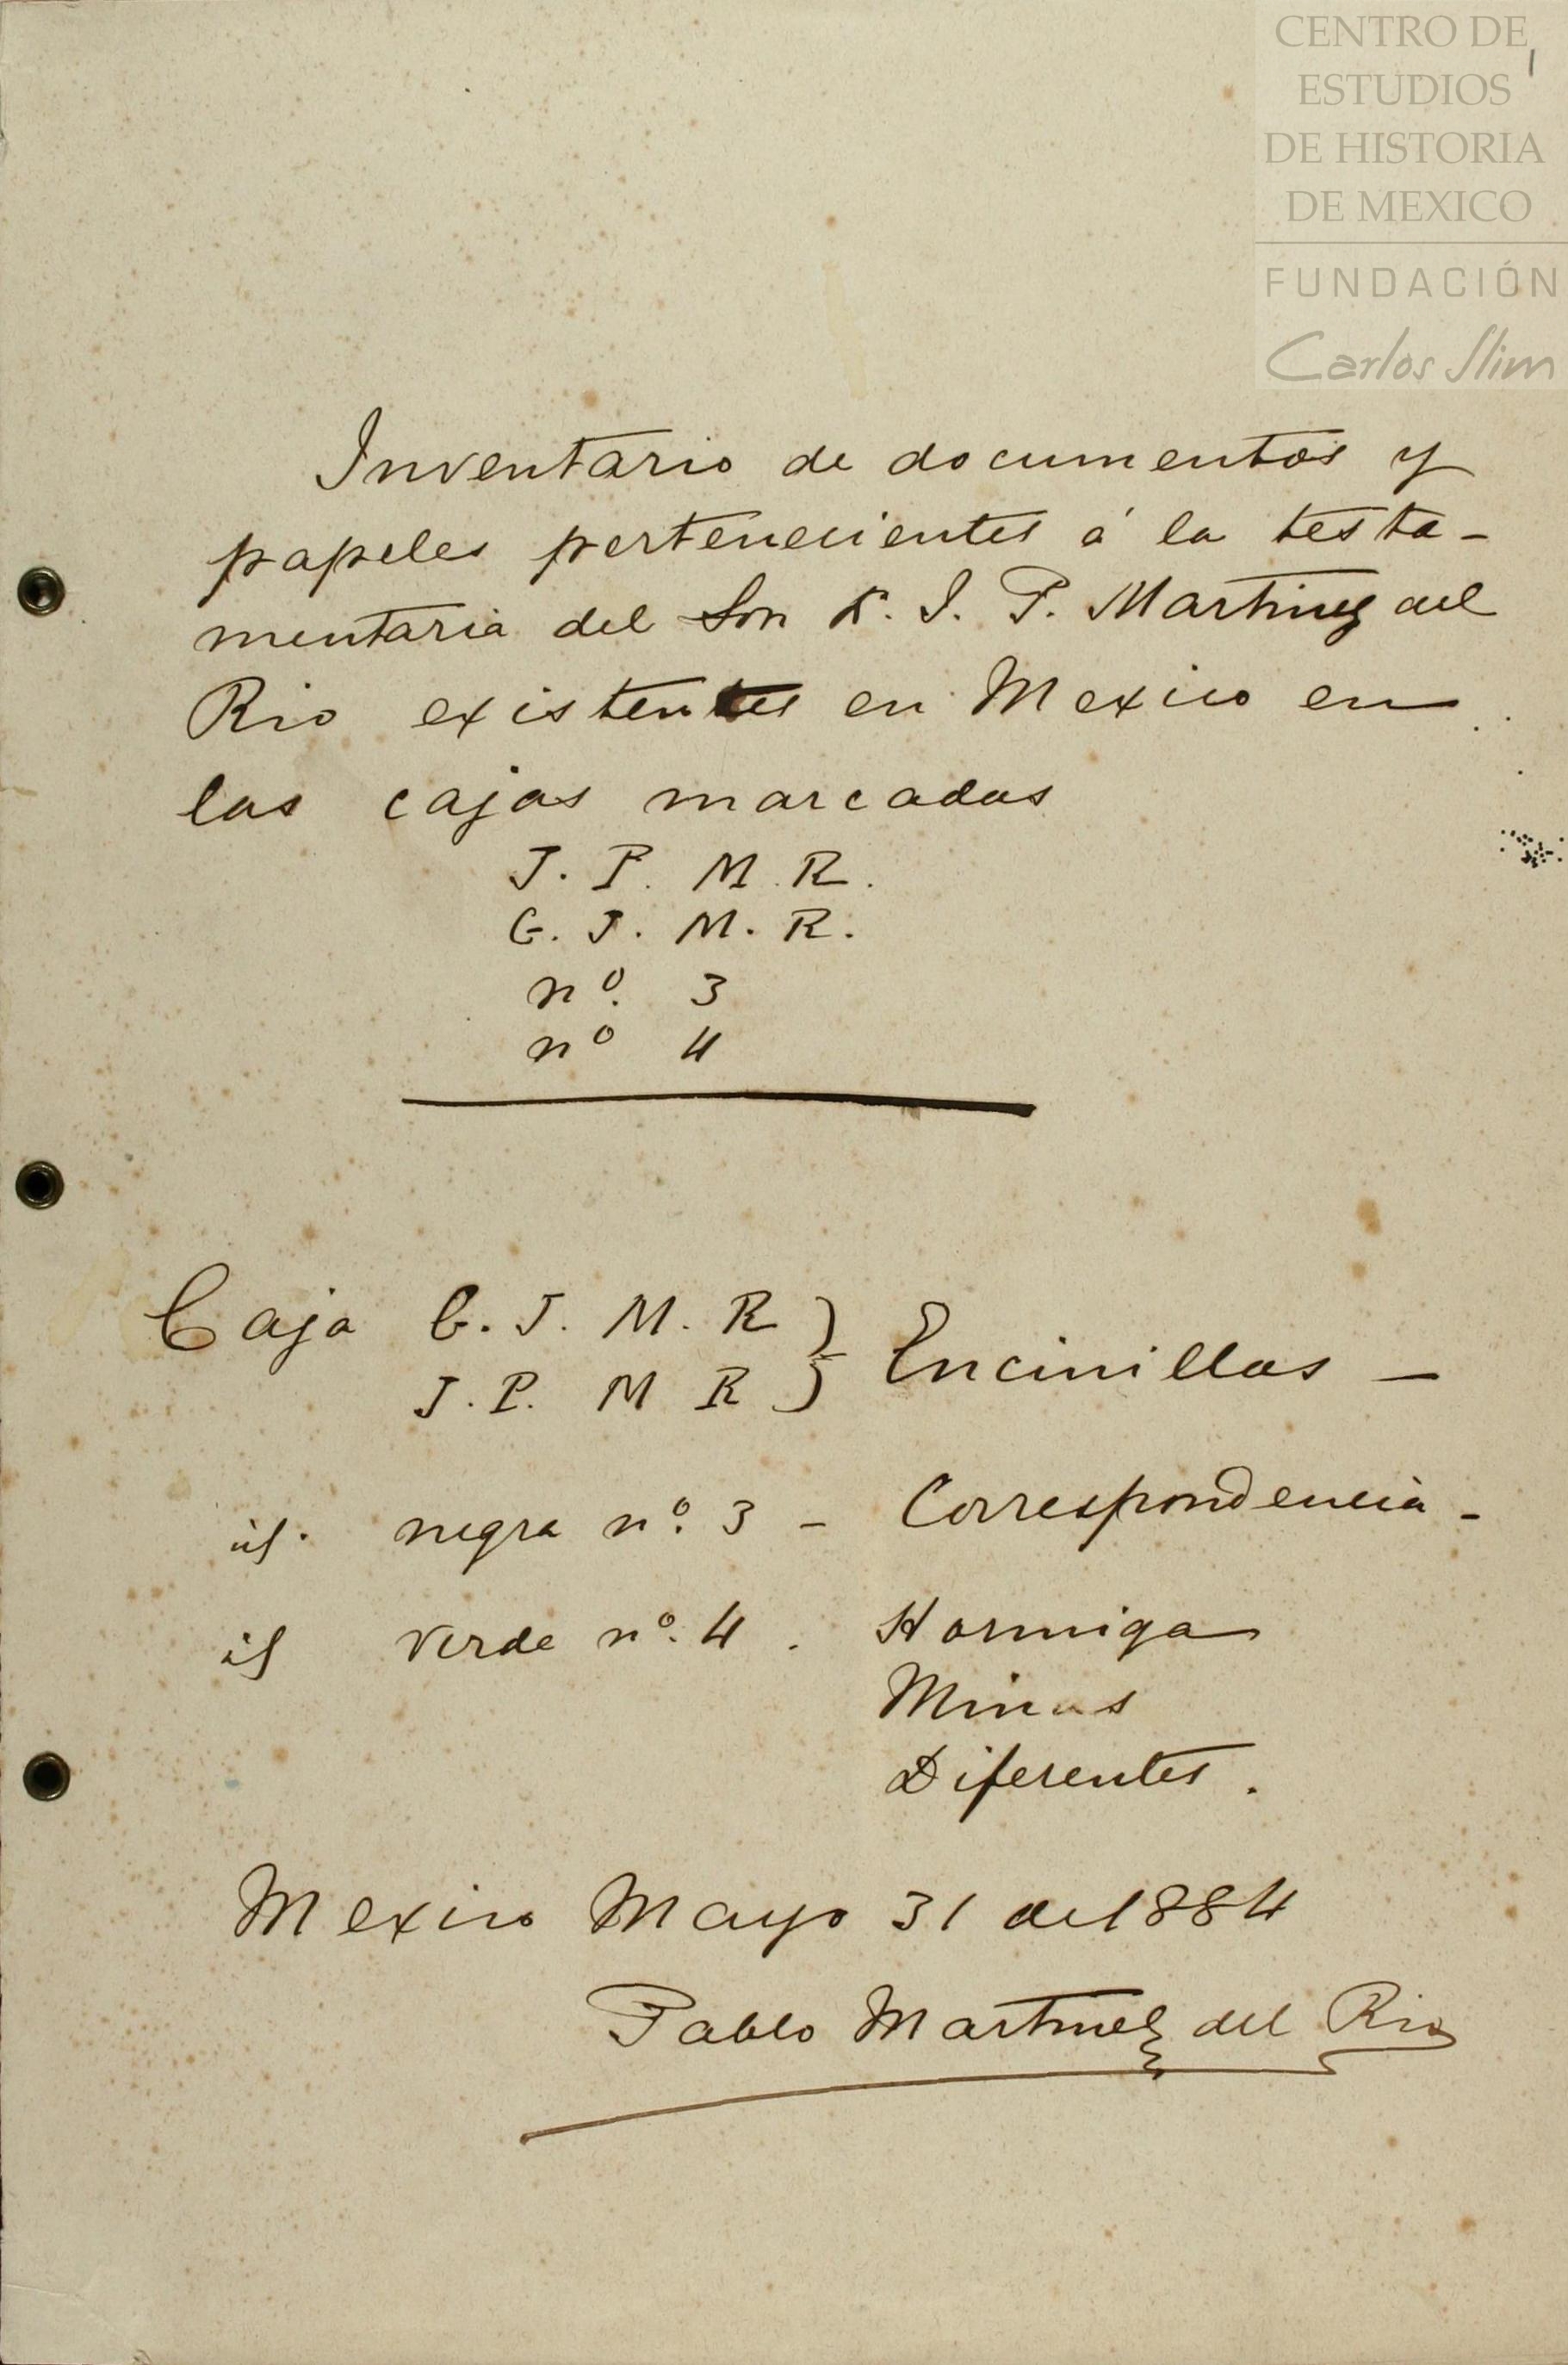 CENTRO DE
ESTUDIOS
DE HISTORIA
DE MEXICO
FUNDACIÓN
Carlos Slim
1
Inventario de documentos y
papeles pertenecientes á la testa-
mentaria del Sor D. J. P. Martinez del
Rio existentes en Mexico en
las cajas marcadas
J. P. M. R.
G. J. M. R.
nº. 3
nº 4
Caja G. J. M. R } Encinillas –
J. P. M R
id. negra nº. 3 – Correspondencia -
id verde nº. 4 . Hormiga
Minas
Diferentes.
Mexico Mayo 31 de 1884
Pablo Martinez del Rio